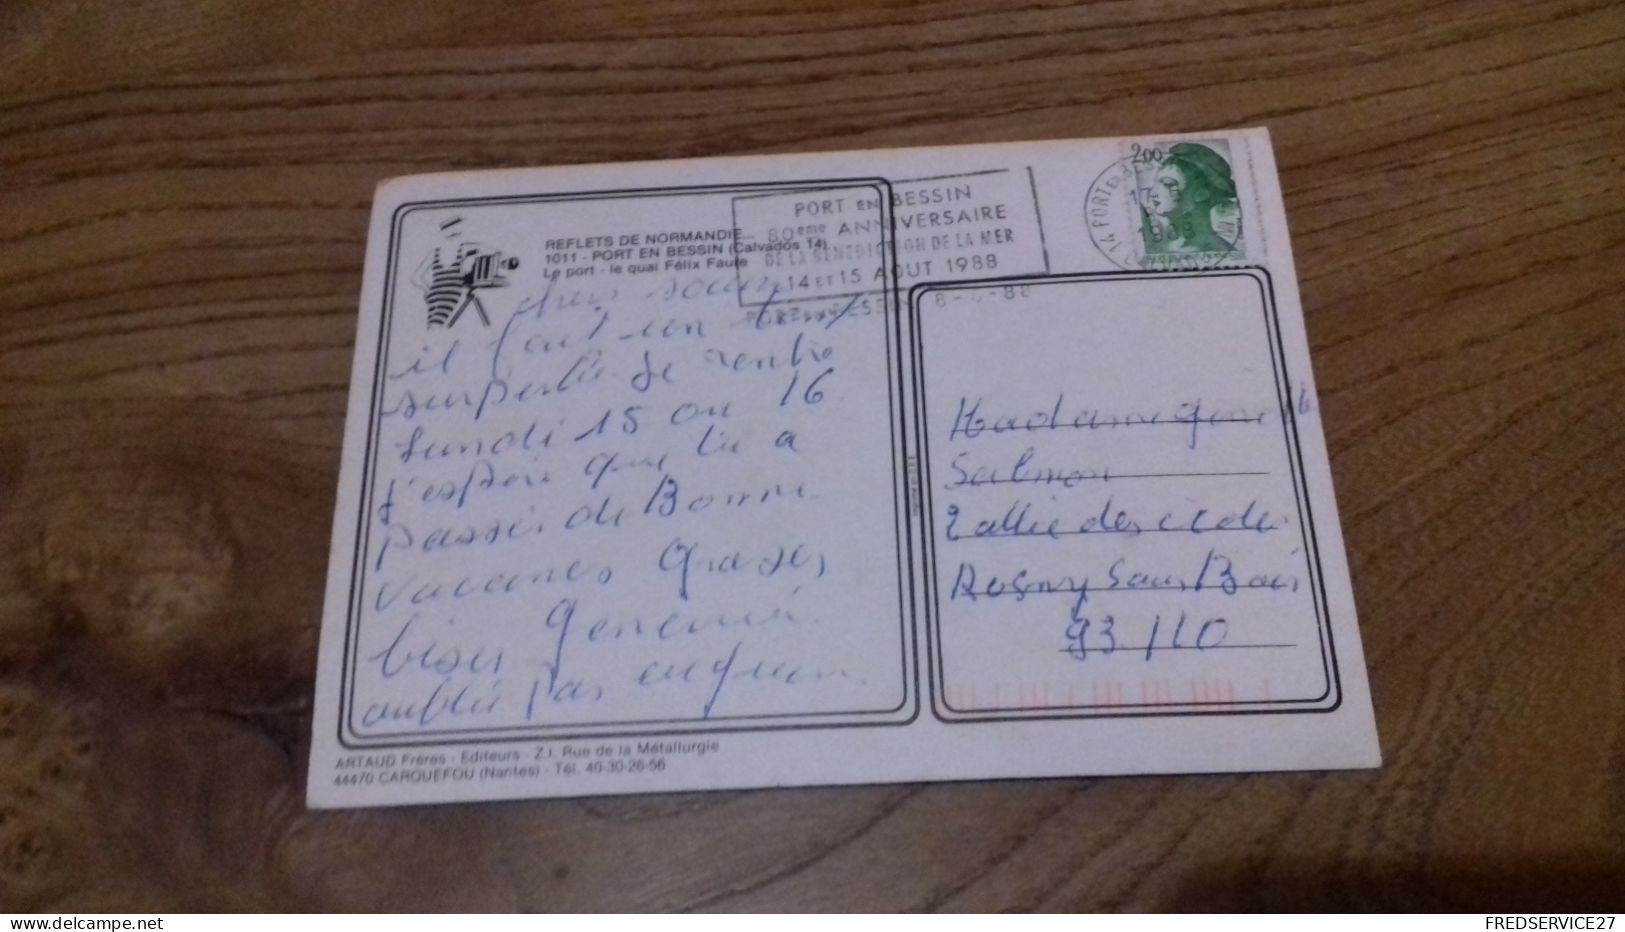 REFLETS DE NORMANDIE...
1011 - PORT EN BESSIN (Calvados 14)
Le port - le quai Félix Faure
PORT EN BESSIN
80eme ANNIVERSAIRE
DE LA BENEDICTION DE LA MER
14 ET 15 AOUT 1988
2,00
1988
il fait un
superbe je rentre
Lundi 15 ou 16
j'espère que tu a
passer de Bonne
vacances Grosses
bises
oublié pas
Madame
Salmon
2 allée des
Rosny Sous Bois
93.110
ARTAUD Frères - Editeurs - Z.I. Rue de la Métallurgie
44470 CARQUEFOU (Nantes) - Tél. 40-30-26-56
FREDSERVICE27